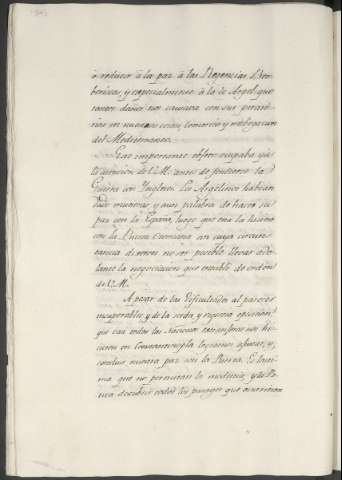 ó reducir à la paz á las Regencias Ber-
beriscas, y especialmente à la de Argel que
tantos daños nos causava con sus pirate-
rias en nuestras costas, comercio y navegacion
del Mediterraneo.
Este importante objeto ocupaba ya
la atencion de V.M. antes de fenecerse la
Guerra con Inglaterra. Los Argelinos habian
dado muestras y aun palabra de hacer su
paz con la España, luego que esta la hiciese
con la Puerta Otomana en cuya circuns-
tancia dixeron no ser posible llevar ade-
lante la negociacion que entable de orden
de V.M.
A pesar de las dificultades al parecer
insuperables, y de la sorda y rigorosa oposicion
que casi todas las Naciones extrangeras nos hi-
cieron en Constantinopla, logramos ajustar, y
concluir nuestra paz con la Puerta. El
que no permitan la modestia, y la
descubrir todos los pasages que ocurrieron